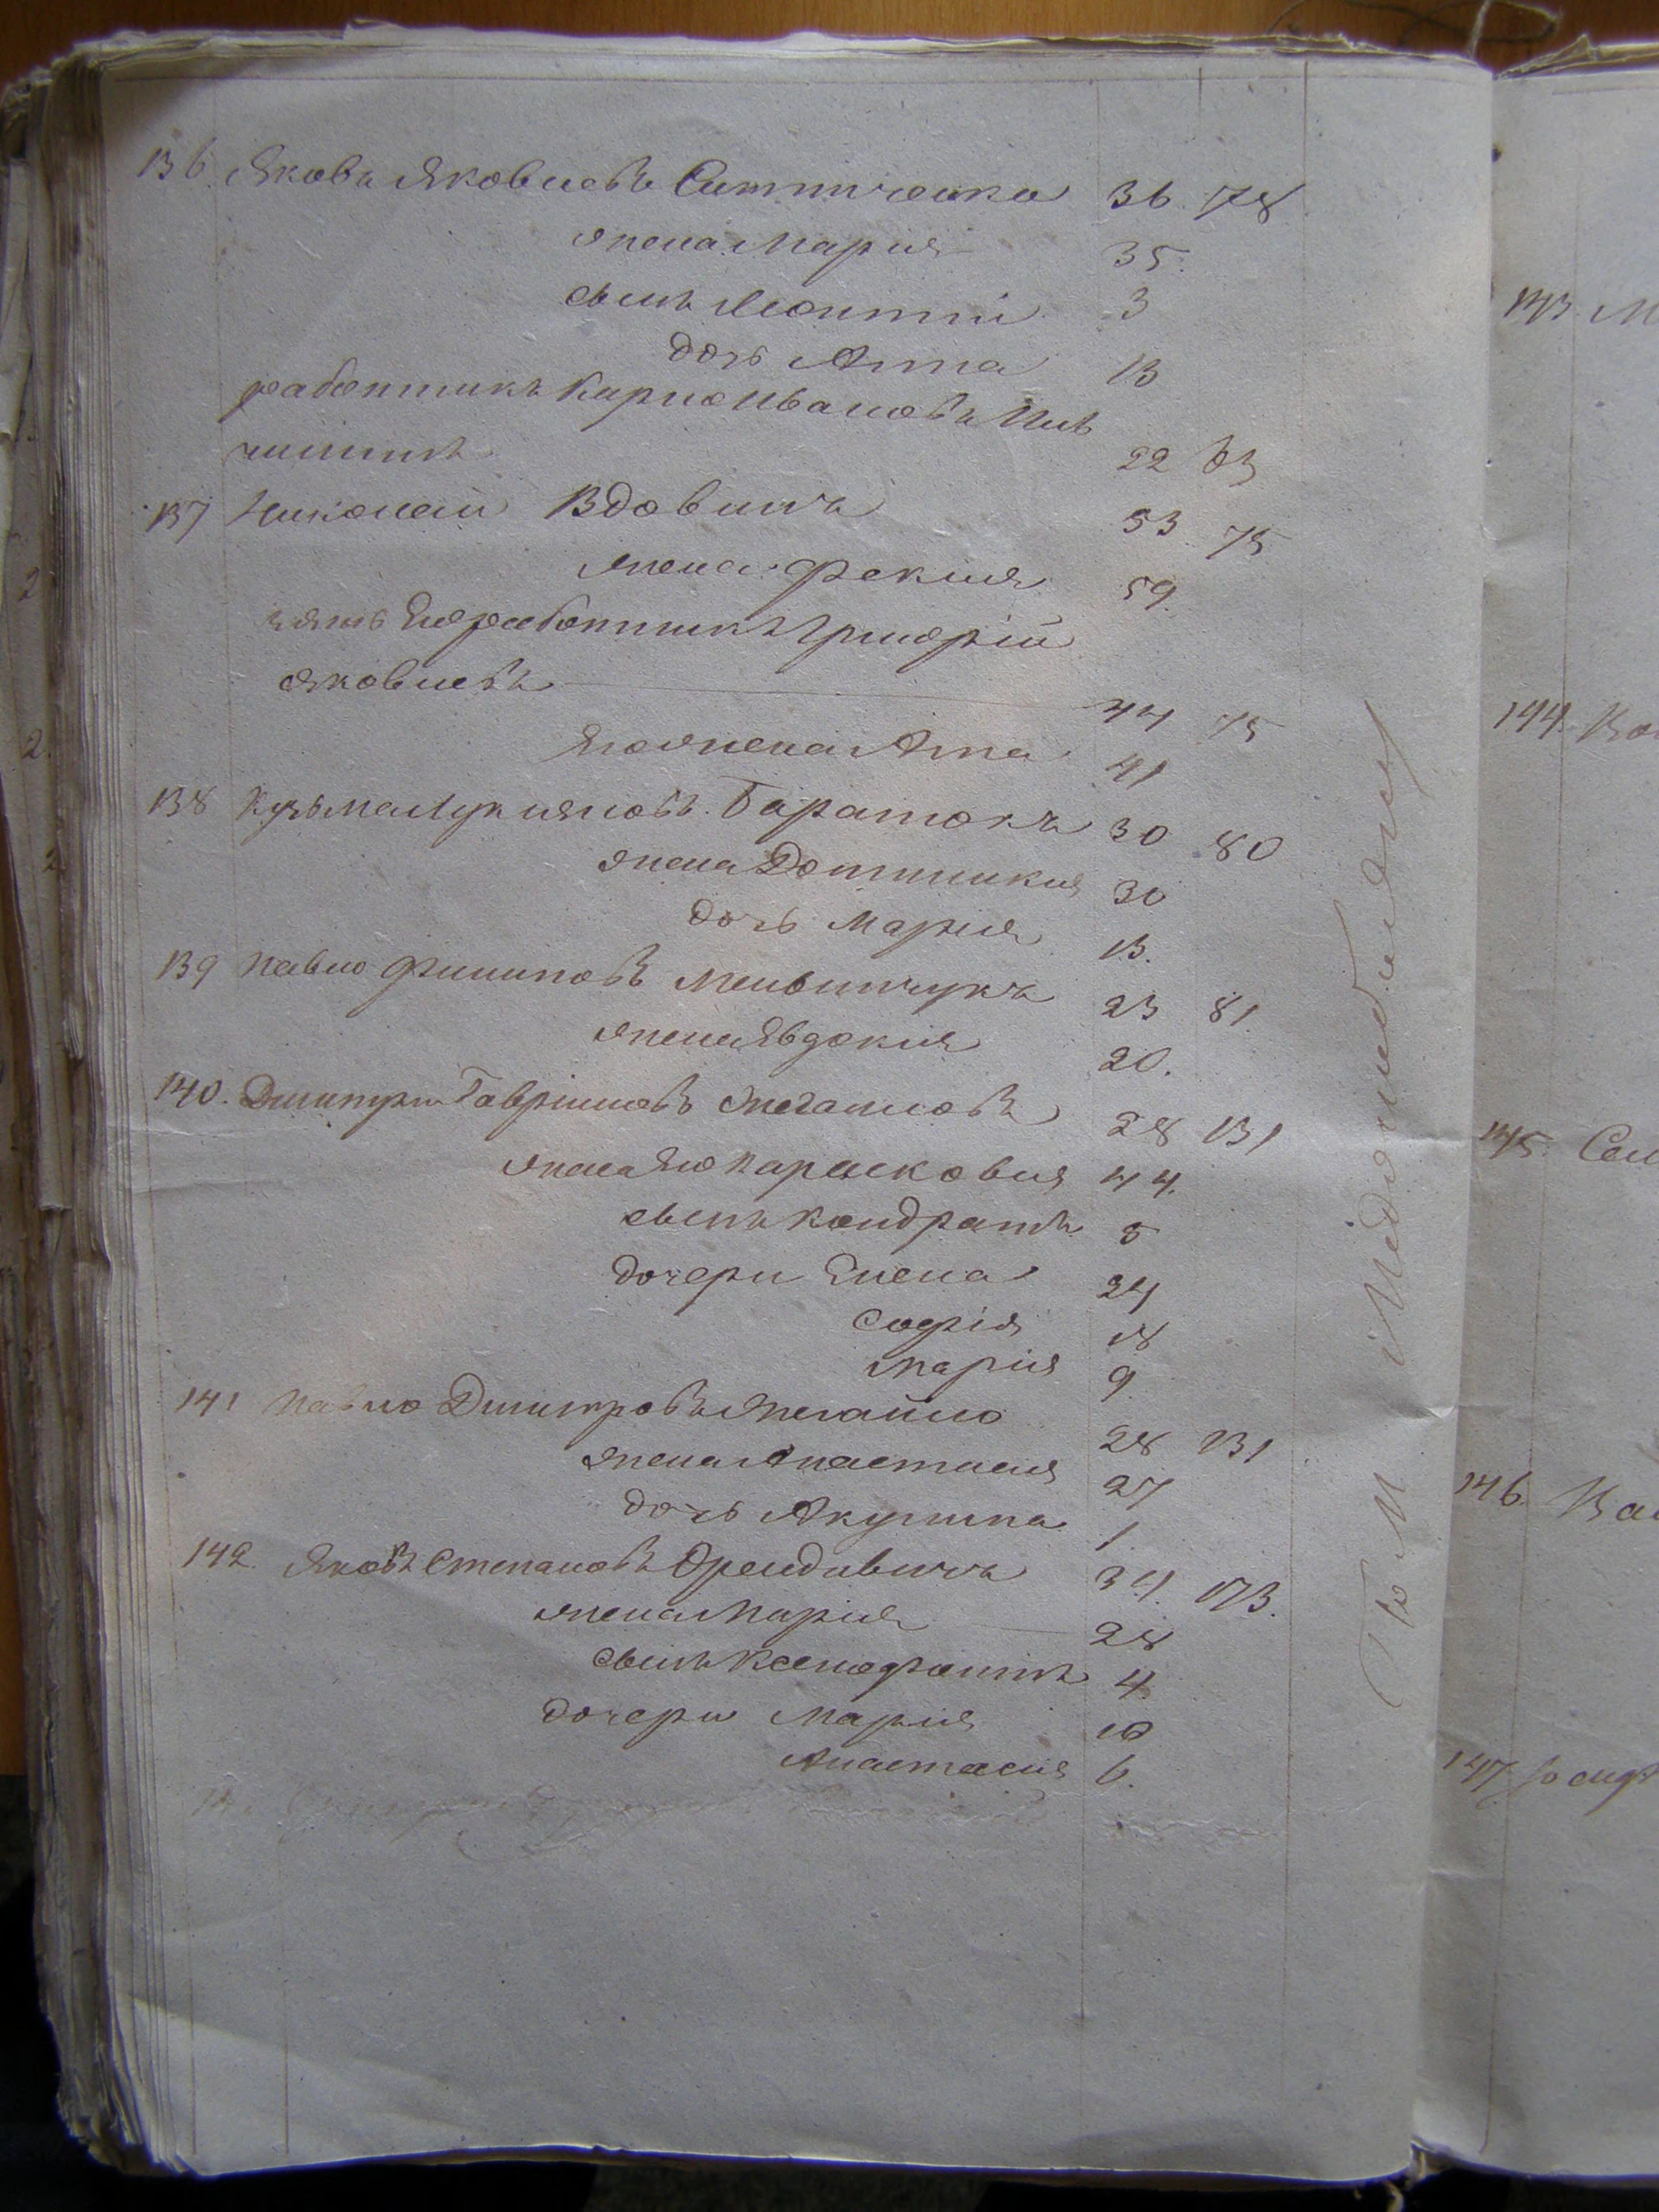 136. Яковъ Яковлевъ Ситниченко 36 78
жена Мария 35.
сынъ Леонтій 3
дочь Анна 13
работникъ Карпо Ивановъ
22 83
137 Николай Вдовичъ 53. 75
жена Фекла 59.
зять Его работникъ Григорій
Яковлевъ 44 75
Его жена Анна 41
138 Кузьма Лукияновъ Баранюкъ 30 80
жена Домникия 30
дочь Мария 13.
139 Павло Филиповъ Мельничукъ 23 81.
жена Явдокия 20.
140. Дмитри Гавриловъ 28 131
жена Его Парасковия 44.
сынъ Кондратъ 5
дочери Елена 24
Софія 18
Мария 9
141 Павло Дмитровъ 28 131
жена Анастасия 27
дочь Акулина 1.
142. Яковъ Степановъ Орендовичъ 34. 173.
жена Мария 28
сынъ Ксенофонтъ 4.
дочери Мария 10
Анастасия 6.
143 М
144. Ва
145. Сем
146. Ва
147